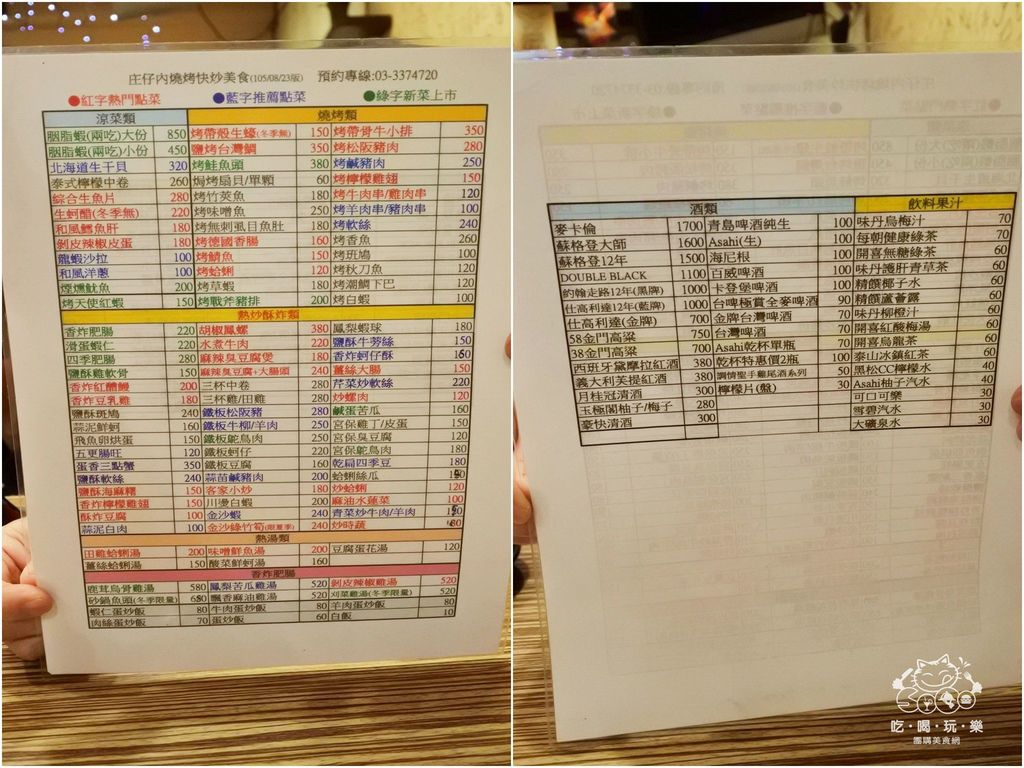 庄仔內燒烤快炒美食(105/08/23版) 預約專線:03-3374720
●紅字熱門點菜 ●藍字推薦點菜 ●綠字新菜上市
涼菜類 燒烤類
胭脂蝦(兩吃)大份 850 烤帶殼生蠔(冬季無) 150 烤帶骨牛小排 350
胭脂蝦(兩吃)小份 450 鹽烤台灣鯛 350 烤松阪豬肉 280
北海道生干貝 320 烤鮭魚頭 380 烤鹹豬肉 250
泰式檸檬中卷 260 焗烤扇貝/單顆 60 烤檸檬雞翅 150
綜合生魚片 280 烤竹莢魚 180 烤牛肉串/雞肉串 120
生蚵醋(冬季無) 220 烤味噌魚 250 烤羊肉串/豬肉串 100
和風鱈魚肝 180 烤無刺虱目魚肚 180 烤軟絲 240
剝皮辣椒皮蛋 180 烤德國香腸 160 烤香魚 260
龍蝦沙拉 100 烤鯖魚 150 烤斑鳩 100
和風洋蔥 100 烤蛤蜊 120 烤秋刀魚 120
煙燻魷魚 200 烤草蝦 180 烤潮鯛下巴 120
烤天使紅蝦 150 烤戰斧豬排 200 烤白蝦 100
熱炒酥炸類
香炸肥腸 220 胡椒鳳螺 380 鳳梨蝦球 180
滑蛋蝦仁 220 水煮牛肉 220 鹽酥牛蒡絲 150
四季肥腸 280 麻辣臭豆腐煲 180 香炸蚵仔酥
鹽酥雞軟骨 150 麻辣臭豆腐+大腸頭 240 薑絲大腸 150
香炸紅醩鰻 200 三杯中卷 280 芹菜炒軟絲 220
香炸豆乳雞 180 三杯雞/田雞 280 炒螺肉 120
鹽酥斑鳩 240 鐵板松阪豬 280 鹹蛋苦瓜 160
蒜泥鮮蚵 160 鐵板牛柳/羊肉 250 宮保雞丁/皮蛋 150
飛魚卵烘蛋 150 鐵板鴕鳥肉 250 宮保臭豆腐 120
五更腸旺 120 鐵板蚵仔 220 宮保鴕鳥肉 180
蛋香三點蟹 350 鐵板豆腐 160 乾扁四季豆 180
鹽酥軟絲 240 蒜苗鹹豬肉 250 蛤蜊絲瓜
鹽酥海麻糬 150 客家小炒 180 炒蛤蜊 120
香炸檸檬雞翅 150 川燙白蝦 200 麻油水蓮菜 100
酥炸豆腐 100 金沙蝦 240 青菜炒牛肉/羊肉
蒜泥白肉 100 金沙綠竹筍(限夏季) 240 炒時蔬
熱湯類
田雞蛤蜊湯 200 味噌鮮魚湯 200 豆腐蛋花湯 120
薑絲蛤蜊湯 150 酸菜鮮蚵湯 160
香炸肥腸
鹿茸烏骨雞湯 580 鳳梨苦瓜雞湯 520 剝皮辣椒雞湯 520
砂鍋魚頭(冬季限量) 飄香麻油雞湯 520 刈菜雞湯(冬季限量) 520
蝦仁蛋炒飯 80 牛肉蛋炒飯 80 羊肉蛋炒飯 80
肉絲蛋炒飯 70 蛋炒飯 60 白飯 10
酒類 飲料果汁
麥卡倫 1700 青島啤酒純生 100 味丹烏梅汁 70
蘇格登大師 1600 Asahi(生) 100 每朝健康綠茶 70
蘇格登12年 1500 海尼根 100 開喜無糖綠茶 60
DOUBLE BLACK 1100 百威啤酒 100 味丹護肝青草茶 60
約翰走路12年(黑牌) 1000 卡登堡啤酒 100 精饌椰子水 60
仕高利達12年(藍牌) 1000 台啤極賞全麥啤酒 90 精饌蘆薈露 60
仕高利達(金牌) 700 金牌台灣啤酒 70 味丹柳橙汁 60
58金門高粱 750 台灣啤酒 70 開喜紅酸梅湯 60
38金門高粱 700 Asahi乾杯單瓶 70 開喜烏龍茶 60
西班牙黛摩拉紅酒 380 乾杯特惠價2瓶 100 泰山冰鎮紅茶 60
義大利芙提紅酒 380 調情聖手雞尾酒系列 50 黑松CC檸檬水 40
月桂冠清酒 300 檸檬片(盤) 30 Asahi柚子汽水 40
玉極閣柚子/梅子 280 可口可樂 30
豪快清酒 300 雪碧汽水 30
大礦泉水 30
吃・喝・玩・樂
團購美食網